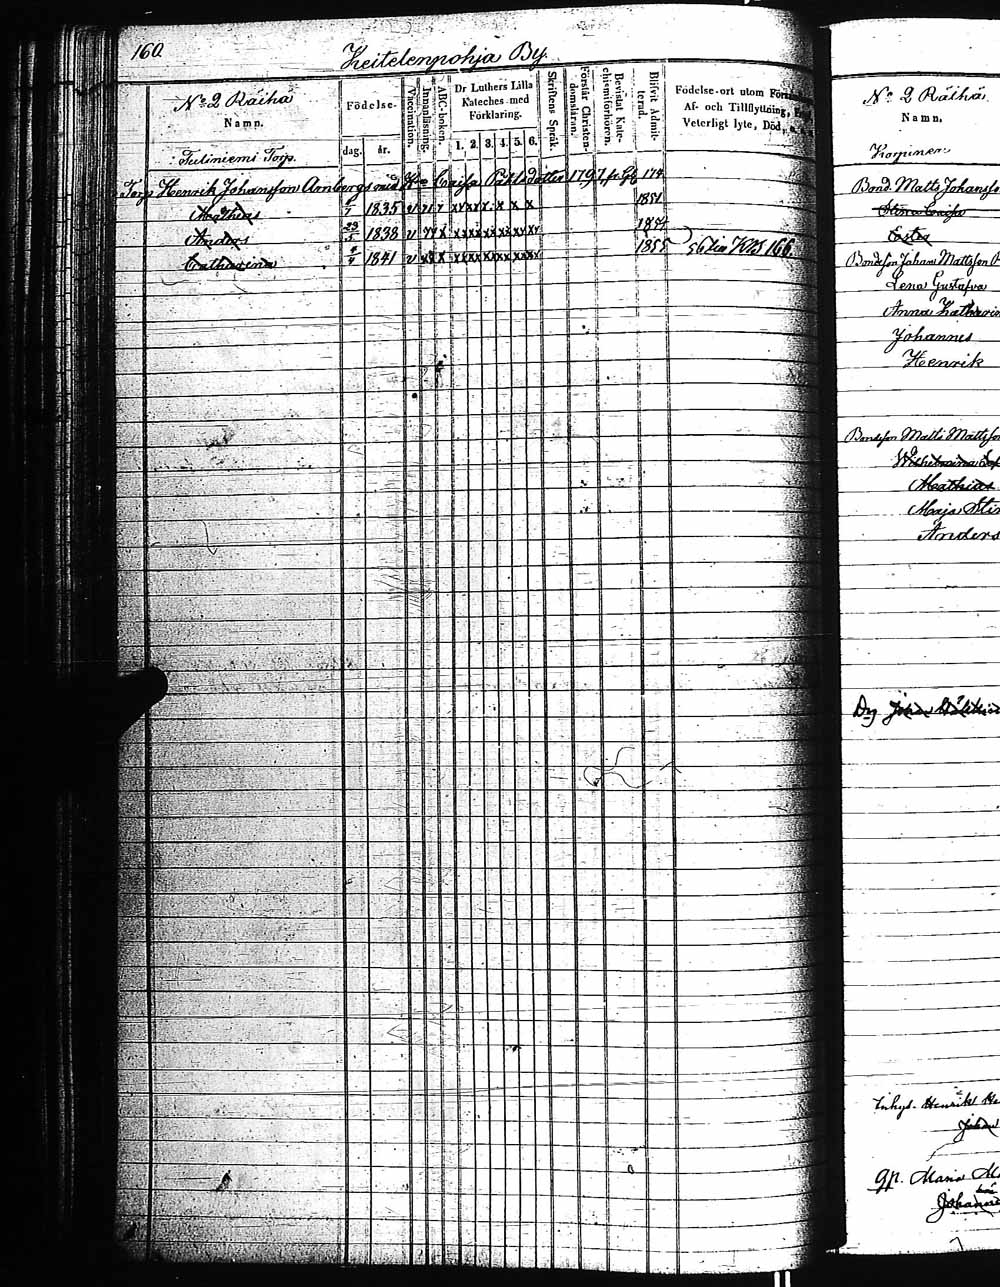 160
Keitelenpohja By
No 2 Räihä
Namn.
Födelse-
dag. år.
Vaccination.
Innanläsning.
ABC-boken.
Dr Luthers Lilla
Kateches med
Förklaring.
1. 2. 3. 4. 5. 6.
Skriftens Språk.
Förstår Christen-
domsläran.
Bevistat Kate-
chismiförhören.
Blifvit Admit-
terad.
Födelse-ort utom
Af- och Tillflyttning,
Veterligt lyte, Död,
Tuliniemi Torp.
Torp. Henrik Johansson Arnberg med Caisa 1797
Mathias 1835 v x x x x x x 1851
Anders 23/5 1838 v x x x x x x 1854
Catharina 1841 v x x x x x x 1855 56 166
No 2 Räihä
Namn.
Korpinen
Bond. Matts Johanss
Stina Caisa
Bondeson Johan Mattsson
Lena Gustafva
Anna Katharin
Johannes
Henrik
Bondeson Matts Mattsson
Wilhelmina
Mathias
Maja Stin
Anders
Drg Johan
Inhys. Henrik He
Johan
gp. Maria M
Johannes